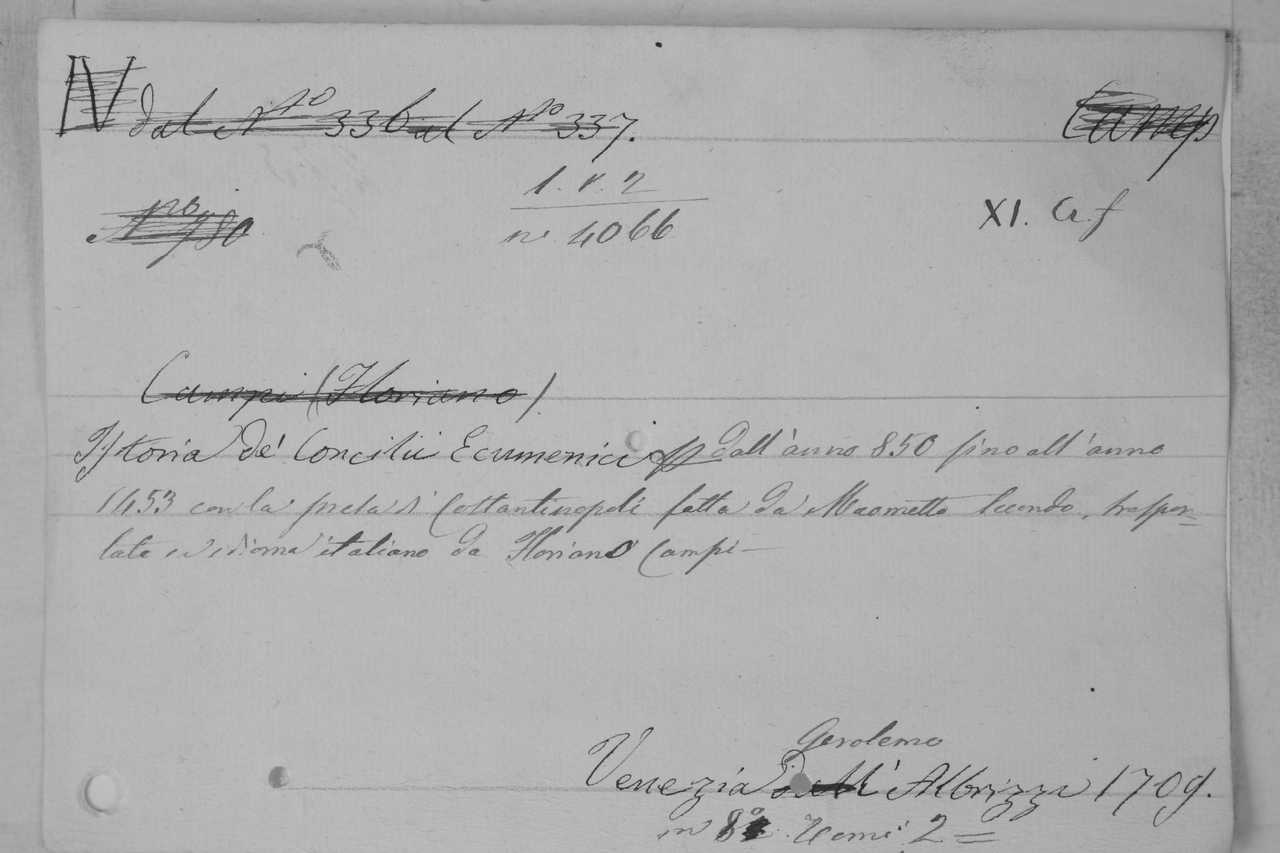 IV dal N.ro 336 al N.ro 337. Camp
1. V. 2
N.ro 780 n. 4066 XI. G. f
Campi (Floriano).
Istoria de' Concilii Ecumenici dall'anno 850 fino all'anno
1453 con la presa di Costantinopoli fatta da Maometto secondo, traspor=
tata in idioma italiano da Floriano Campi —
Gerolemo
Venezia dall' Albrizzi 1709.
in 8° Tomi 2 =